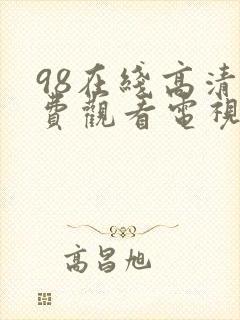 98在綫高清
費觀看電視
高昌旭